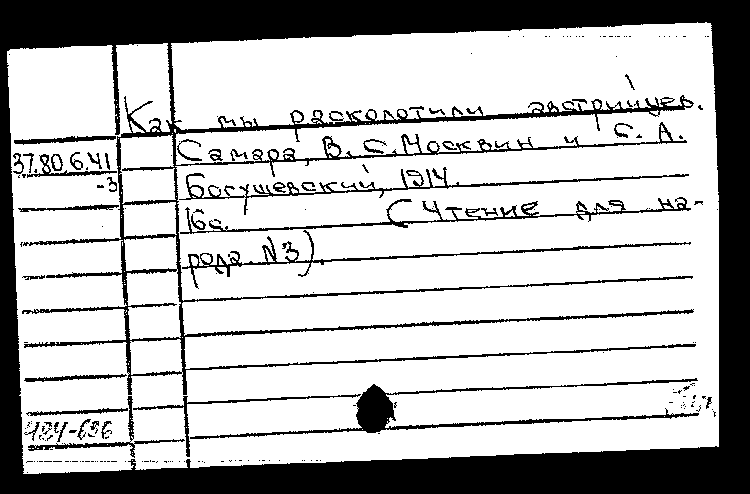 Как мы расколотили австрийцев.
37.80.6.41 Самара, В. С. Москвин и С. А.
-3 Богушевский, 1914.
16с. (Чтение для на-
рода N3).
484-686